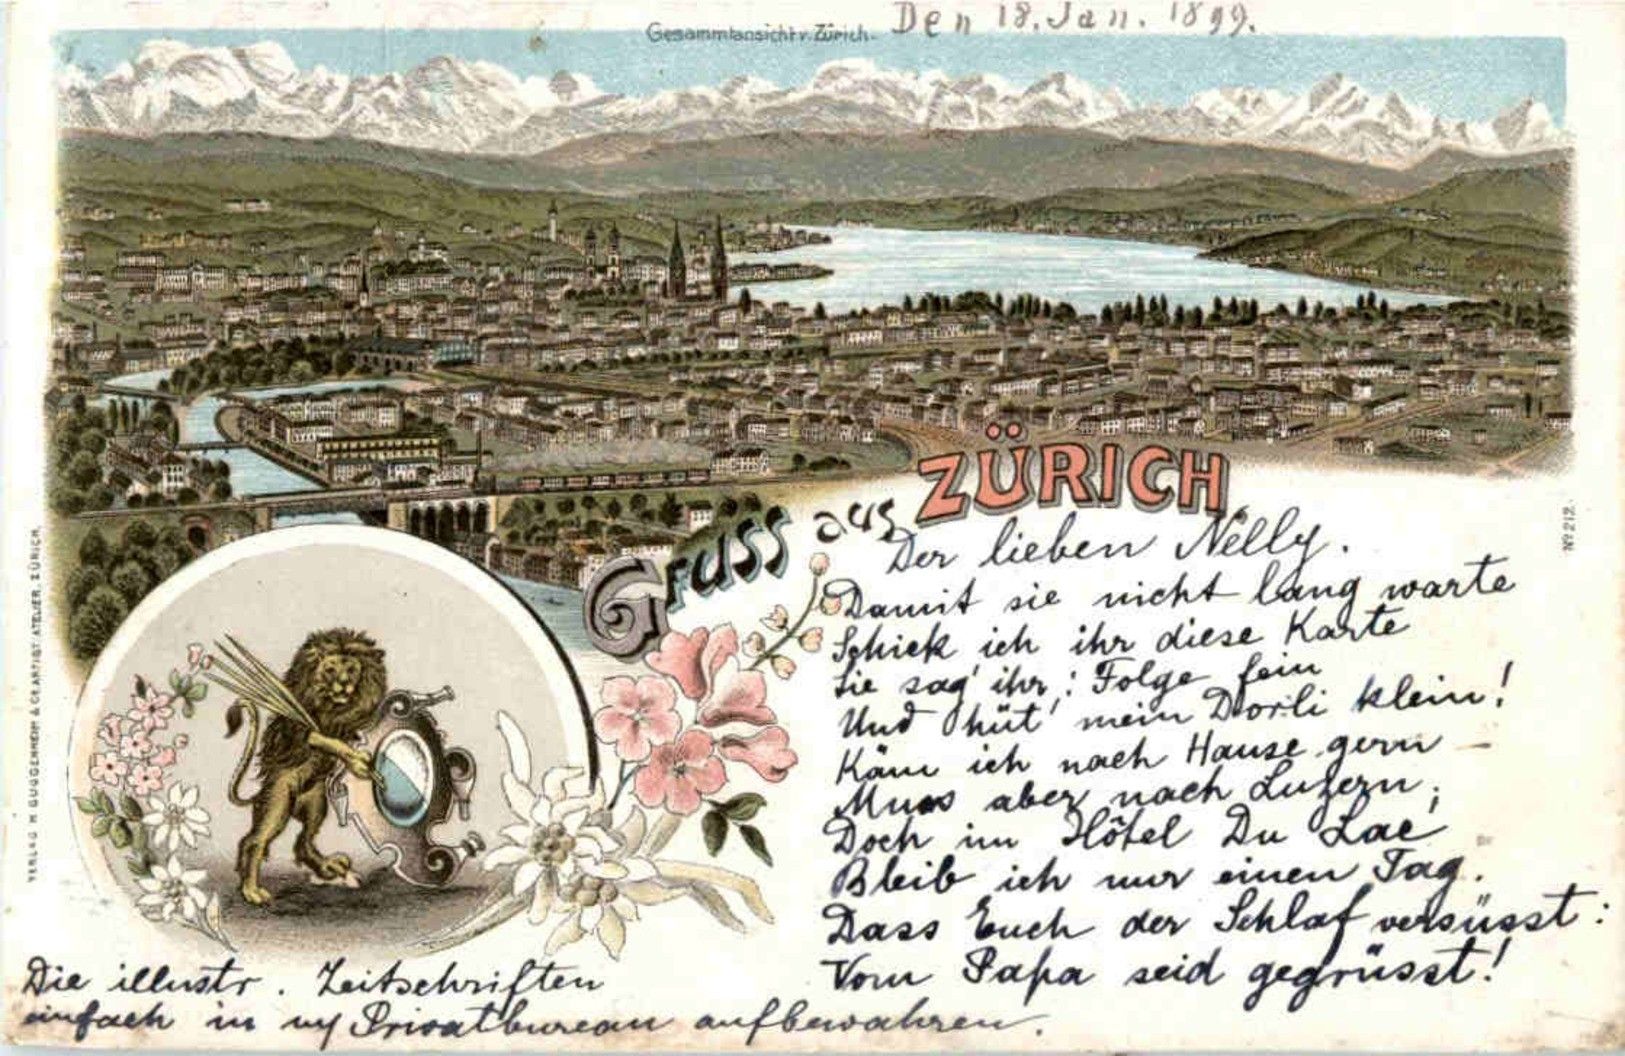 Gesammtansicht v. Zürich.
Den 18. Jan. 1899.
Gruss aus ZÜRICH
Der lieben Nelly.
Damit sie nicht lang warte
Schick ich ihr diese Karte
Sie sag' ihr: Folge fein
Und hüt' mein Dorli klein!
Käm ich nach Hause gern –
Muss aber nach Luzern;
Doch im Hôtel Du Lac
Bleib ich nur einen Tag.
Dass Euch der Schlaf versüsst:
Vom Papa seid gegrüsst!
Die illustr. Zeitschriften
einfach in my Privatbureau aufbewahren.
VERLAG H. GUGGENHEIM & Co ARTIST. ATELIER, ZÜRICH.
No 212.